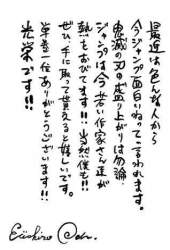 最近は色んな人から
今ジャンプ面白いねって言われます。
鬼滅の刃の盛り上がりは勿論
ジャンプは今若い作家さん達が
熱をおびてます!! 当然僕も!!
ぜひ、手に取って貰えると嬉しいです。
単巻一位ありがとうございます!!
光栄です!!
Eiichiro Oda.